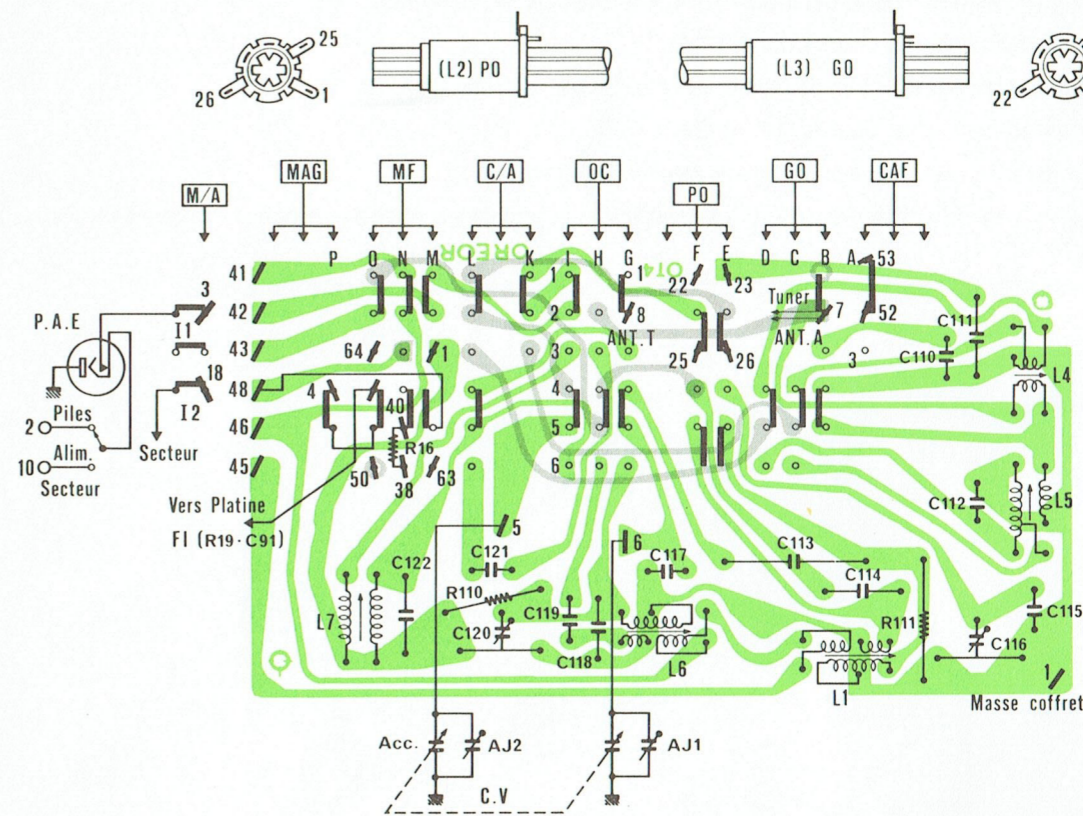 25
26
1
(L2) PO
(L3) GO
22
M/A
MAG
MF
C/A
OC
PO
GO
CAF
OREOR
OT4
P O N M L K I H G F E D C B A
41
42
43
48
46
45
3
I1
18
I2
P.A.E
Piles
2
Alim.
10
Secteur
Secteur
Vers Platine
FI (R19-C91)
64
1
4
40
R16
50
38
63
1
2
3
4
5
6
1
8
ANT.T
22
23
25
26
Tuner
7
ANT.A
53
52
3
C111
C110
L4
C112
L5
5
6
C122
L7
C121
R110
C120
C119
C118
C117
L6
C113
C114
R111
L1
C116
C115
1
Masse coffret
Acc.
AJ2
AJ1
C.V